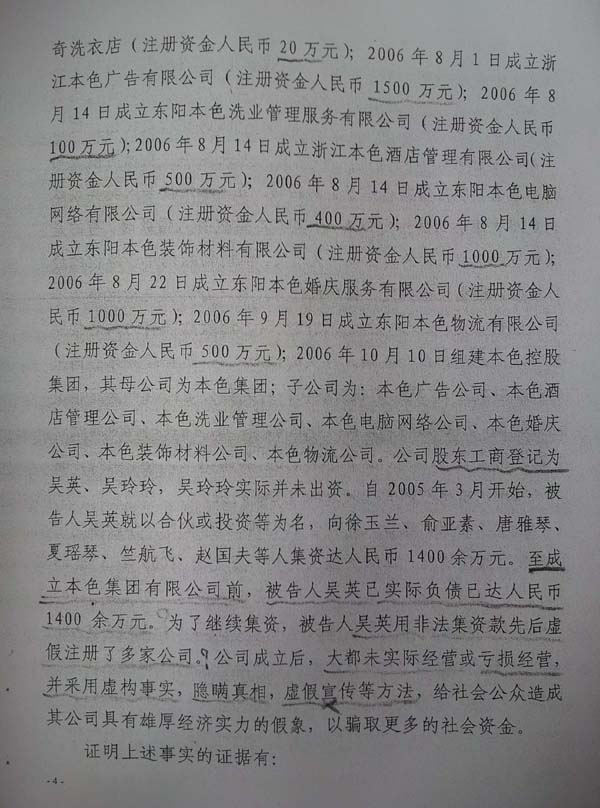 奇洗衣店（注册资金人民币 20 万元）；2006 年 8 月 1 日成立浙
江本色广告有限公司（注册资金人民币 1500 万元）；2006 年 8
月 14 日成立东阳本色洗业管理服务有限公司（注册资金人民币
100 万元）；2006 年 8 月 14 日成立浙江本色酒店管理有限公司（注
册资金人民币 500 万元）；2006 年 8 月 14 日成立东阳本色电脑
网络有限公司（注册资金人民币 400 万元）；2006 年 8 月 14 日
成立东阳本色装饰材料有限公司（注册资金人民币 1000 万元）；
2006 年 8 月 22 日成立东阳本色婚庆服务有限公司（注册资金人
民币 1000 万元）；2006 年 9 月 19 日成立东阳本色物流有限公司
（注册资金人民币 500 万元）；2006 年 10 月 10 日组建本色控股
集团，其母公司为本色集团；子公司为：本色广告公司、本色酒
店管理公司、本色洗业管理公司、本色电脑网络公司、本色婚庆
公司、本色装饰材料公司、本色物流公司。公司股东工商登记为
吴英、吴玲玲，吴玲玲实际并未出资。自 2005 年 3 月开始，被
告人吴英就以合伙或投资等为名，向徐玉兰、俞亚素、唐雅琴、
夏瑶琴、竺航飞、赵国夫等人集资达人民币 1400 余万元。至成
立本色集团有限公司前，被告人吴英已实际负债已达人民币
1400 余万元。为了继续集资，被告人吴英用非法集资款先后虚
假注册了多家公司。公司成立后，大都未实际经营或亏损经营，
并采用虚构事实，隐瞒真相，虚假宣传等方法，给社会公众造成
其公司具有雄厚经济实力的假象，以骗取更多的社会资金。
证明上述事实的证据有：
- 4 -